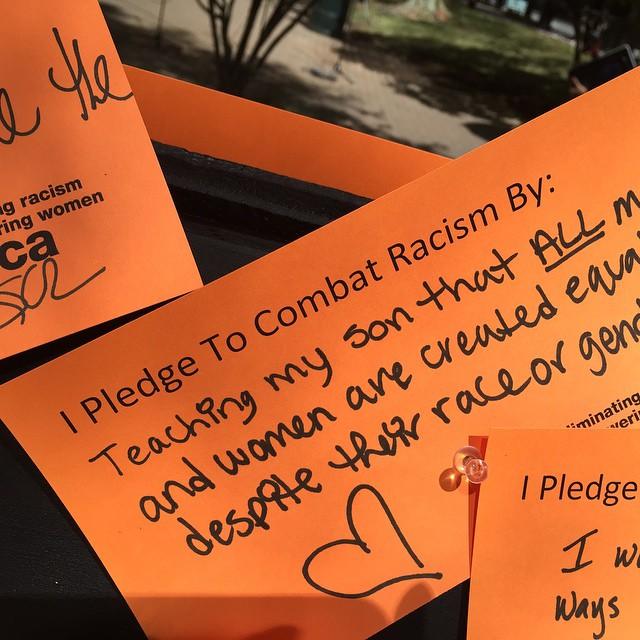 the
ng racism
ring women
ca
I Pledge To Combat Racism By:
Teaching my son that ALL m
and women are created equal
despite their race or gend
iminating
weri
I Pledge
I w
ways